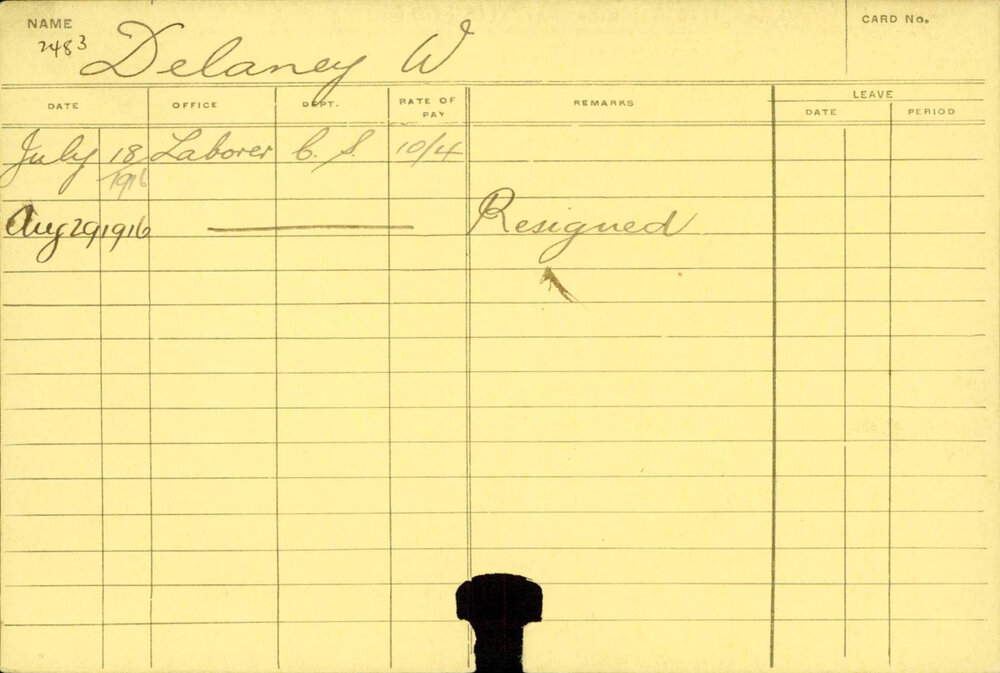 NAME
CARD No.
2483 Delaney W
DATE OFFICE DEPT. RATE OF PAY REMARKS LEAVE
DATE PERIOD
July 18 Laborer C. S. 10/4
1916
Aug 29 1916 Resigned